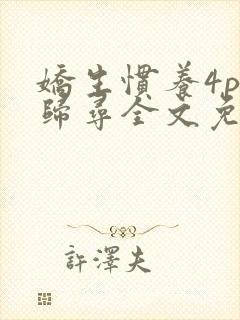 嬌生慣養4p
歸尋全文免
許澤夫